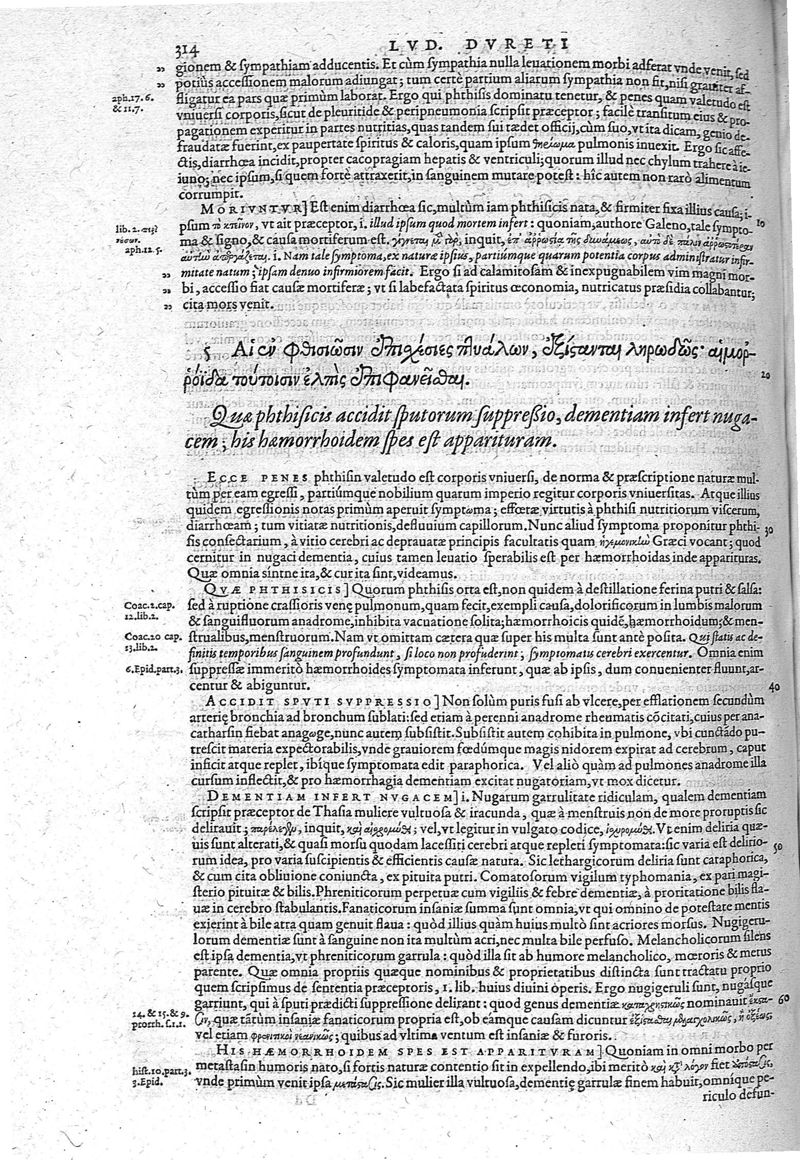 314
LVD. DVRETI
gionem & sympathiam adducentis. Et cùm sympathia nulla leuationem morbi adferat vnde venit, sed
potiùs accessionem malorum adiungat; tum certè partium aliarum sympathia non fit, nisi grauiter af-
aph.17.6.
& 11.7.
fligatur ea pars quæ primùm laborat. Ergo qui phthisis dominatu tenetur, & penes quam valetudo est
vniuersi corporis, sicut de pleuritide & peripneumonia scripsit præceptor; facilè transitum eius & pro-
pagationem experitur in partes nutritias, quas tandem sui tædet officij, cùm suo, vt ita dicam, genio de-
fraudatæ fuerint, ex paupertate spiritus & caloris, quam ipsum pulmonis inuexit. Ergo sic affe-
ctis, diarrhœa incidit, propter cacopragiam hepatis & ventriculi; quorum illud nec chylum trahere à ie-
iuno; nec ipsum, si quem fortè attraxerit, in sanguinem mutare potest: hîc autem non rarò alimentum
corrumpit.
MORIVNTVR] Est enim diarrhœa sic, multùm iam phthisicis nata, & firmiter fixa illius causa; i-
lib. 2.
aph. 12. 5.
psum vt ait præceptor, i. illud ipsum quod mortem infert: quoniam, authore Galeno, tale sympto- 10
ma & signo, & causa mortiferum est. inquit,
i. Nam tale symptoma, ex naturæ ipsius, partiumque quarum potentia corpus administratur infir-
mitate natum; ipsam denuo infirmiorem facit. Ergo si ad calamitosam & inexpugnabilem vim magni mor-
bi, accessio fiat causæ mortiferæ; vt si labefactata spiritus œconomia, nutricatus præsidia collabantur;
cita mors venit.
ς Αἱ ἐν φθισιῶσιν ἐπισχέσιες πτυάλων, ἐξίστανται ληρωδῶς· αἱμορ-
ῥοΐδα τούτοισιν ἐλπὶς ἐπιφανεῖσθαι. 20
Quæ phthisicis accidit sputorum suppressio, dementiam infert nuga-
cem; his hæmorrhoidem spes est apparituram.
ECCE PENES phthisin valetudo est corporis vniuersi, de norma & præscriptione naturæ mul-
tùm per eam egressi, partiúmque nobilium quarum imperio regitur corporis vniuersitas. Atque illius
quidem egressionis notas primùm aperuit symptωma; effœtæ virtutis à phthisi nutritiorum viscerum,
diarrhœam; tum vitiatæ nutritionis, defluuium capillorum. Nunc aliud symptoma proponitur phthi- 30
sis consectarium, à vitio cerebri ac deprauatæ principis facultatis quam ἡγεμονικὴν Græci vocant; quod
cernitur in nugaci dementia, cuius tamen leuatio sperabilis est per hæmorrhoidas inde apparituras.
Quæ omnia sintne ita, & cur ita sint, videamus.
QVÆ PHTHISICIS] Quorum phthisis orta est, non quidem à destillatione ferina putri & salsa:
Coac.2.cap.
12.lib.2.
sed à ruptione crassioris venę pulmonum, quam fecit, exempli causa, dolorificorum in lumbis malorum
& sanguifluorum anadrome, inhibita vacuatione solita; hæmorrhoicis quidē, hæmorrhoidum; & men-
Coac.20 cap.
13.lib.2.
strualibus, menstruorum. Nam vt omittam cætera quæ super his multa sunt antè posita. Qui statis ac de-
finitis temporibus sanguinem profundunt, si loco non profuderint; symptomatis cerebri exercentur. Omnia enim
6.Epid.part.3.
suppressæ immeritò hæmorrhoides symptomata inferunt, quæ ab ipsis, dum conuenienter fluunt, ar-
centur & abiguntur. 40
ACCIDIT SPVTI SVPPRESSIO] Non solùm puris fusi ab vlcere, per efflationem secundùm
arterię bronchia ad bronchum sublati: sed etiam à perenni anadrome rheumatis cōcitati, cuius per ana-
catharsin fiebat anagωge, nunc autem subsistit. Subsistit autem cohibita in pulmone, vbi cunctādo pu-
trescit materia expectorabilis, vnde grauiorem fœdúmque magis nidorem expirat ad cerebrum, caput
inficit atque replet, ibíque symptomata edit paraphorica. Vel aliò quàm ad pulmones anadrome illa
cursum inflectit, & pro hæmorrhagia dementiam excitat nugatoriam, vt mox dicetur.
DEMENTIAM INFERT NVGACEM] i. Nugarum garrulitate ridiculam, qualem dementiam
scripsit præceptor de Thasia muliere vultuosa & iracunda, quæ à menstruis non de more proruptis sic
delirauit; inquit, vel, vt legitur in vulgato codice, Vt enim deliria quæ-
uis sunt alterati, & quasi morsu quodam lacessiti cerebri atque repleti symptomata: sic varia est delirio- 50
rum idea, pro varia suscipientis & efficientis causæ natura. Sic lethargicorum deliria sunt cataphorica,
& cum cita obliuione coniuncta, ex pituita putri. Comatosorum vigilum typhomania, ex pari magi-
sterio pituitæ & bilis. Phreniticorum perpetuæ cum vigiliis & febre dementiæ, à proritatione bilis fla-
uæ in cerebro stabulantis. Fanaticorum insaniæ summa sunt omnia, vt qui omnino de potestate mentis
exierint à bile atra quam genuit flaua: quòd illius quàm huius multò sint acriores morsus. Nugigeru-
lorum dementiæ sunt à sanguine non ita multùm acri, nec multa bile perfuso. Melancholicorum silens
est ipsa dementia, vt phreniticorum garrula: quòd illa sit ab humore melancholico, mœroris & metus
parente. Quæ omnia propriis quæque nominibus & proprietatibus distincta sunt tractatu proprio
quem scripsimus de sententia præceptoris, 1. lib. huius diuini operis. Ergo nugigeruli sunt, nugásque
24. & 15. & 9.
prorrh. f.1.1.
garriunt, qui à sputi prædicti suppressione delirant: quod genus dementiæ καταχρηστικῶς nominauit 60
quæ tantùm insaniæ fanaticorum propria est, ob eamque causam dicuntur
vel etiam φρενιτικοὶ νεανικῶς; quibus ad vltima ventum est insaniæ & furoris.
HIS HÆMORRHOIDEM SPES EST APPARITVRAM] Quoniam in omni morbo per
hist.10.part.3.
3.Epid.
metastasin humoris nato, si fortis naturæ contentio sit in expellendo, ibi meritò καὶ κατὰ λόγον fiet ἀπόστασις
vnde primùm venit ipsa μετάστασις. Sic mulier illa vultuosa, dementię garrulæ finem habuit, omnique pe-
riculo defun-